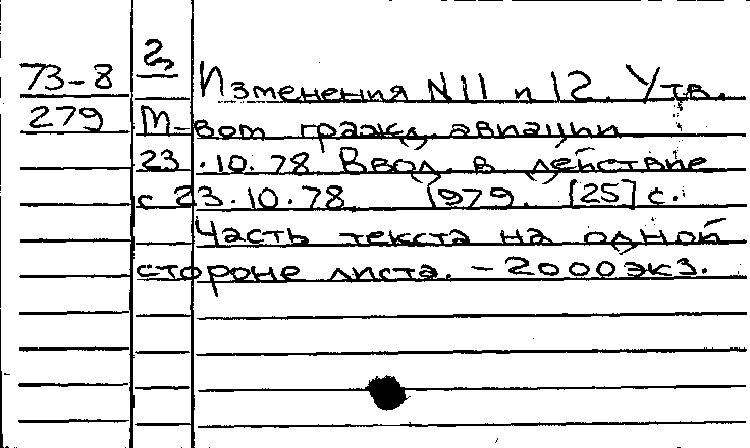 2
73-8 Изменения N 11 и 12. Утв.
279 М-вом гражд. авиации
23.10.78 Ввод. в действие
с 23.10.78. 1979. [25] с.
Часть текста на одной
стороне листа. - 2000 экз.